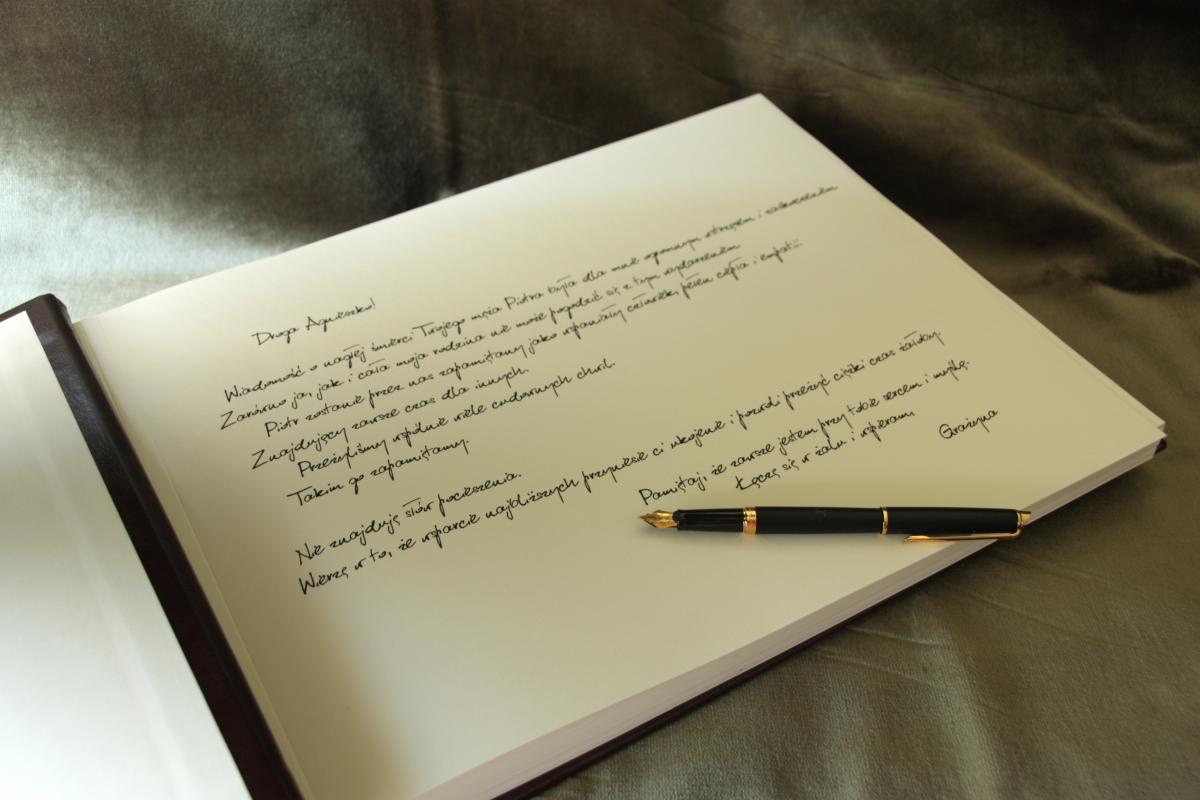 Droga Agnieszko!
Wiadomość o nagłej śmierci Twojego męża Piotra była dla mnie ogromnym wstrząsem i zaskoczeniem
Zarówno ja, jak i cała moja rodzina nie może pogodzić się z tym wydarzeniem
Piotr zostanie przez nas zapamiętany jako wspaniały człowiek, pełen ciepła i empatii
Znajdujący zawsze czas dla innych.
Przeżyliśmy wspólnie wiele cudownych chwil.
Takim go zapamiętamy.
Nie znajduję słów pocieszenia.
Wierzę w to, że wsparcie najbliższych przyniesie ci ukojenie i pozwoli przeżyć ciężki czas żałoby.
Pamiętaj, że zawsze jestem przy tobie sercem i myślą.
Łączę się w żalu i wspieram
Grażyna